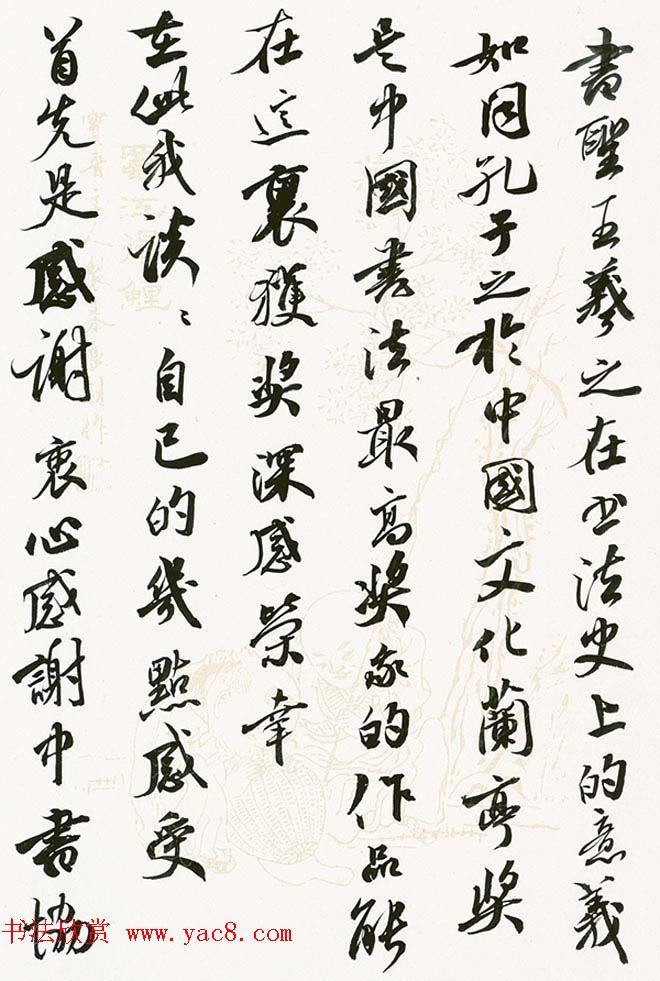 書聖王羲之在书法史上的意義
如同孔子之於中國文化蘭亭奖
是中國書法最高奖我的作品能
在這裏獲奖深感榮幸
在此我談〻自己的幾點感受
首先是感谢衷心感謝中書協
书法欣赏 www.yac8.com